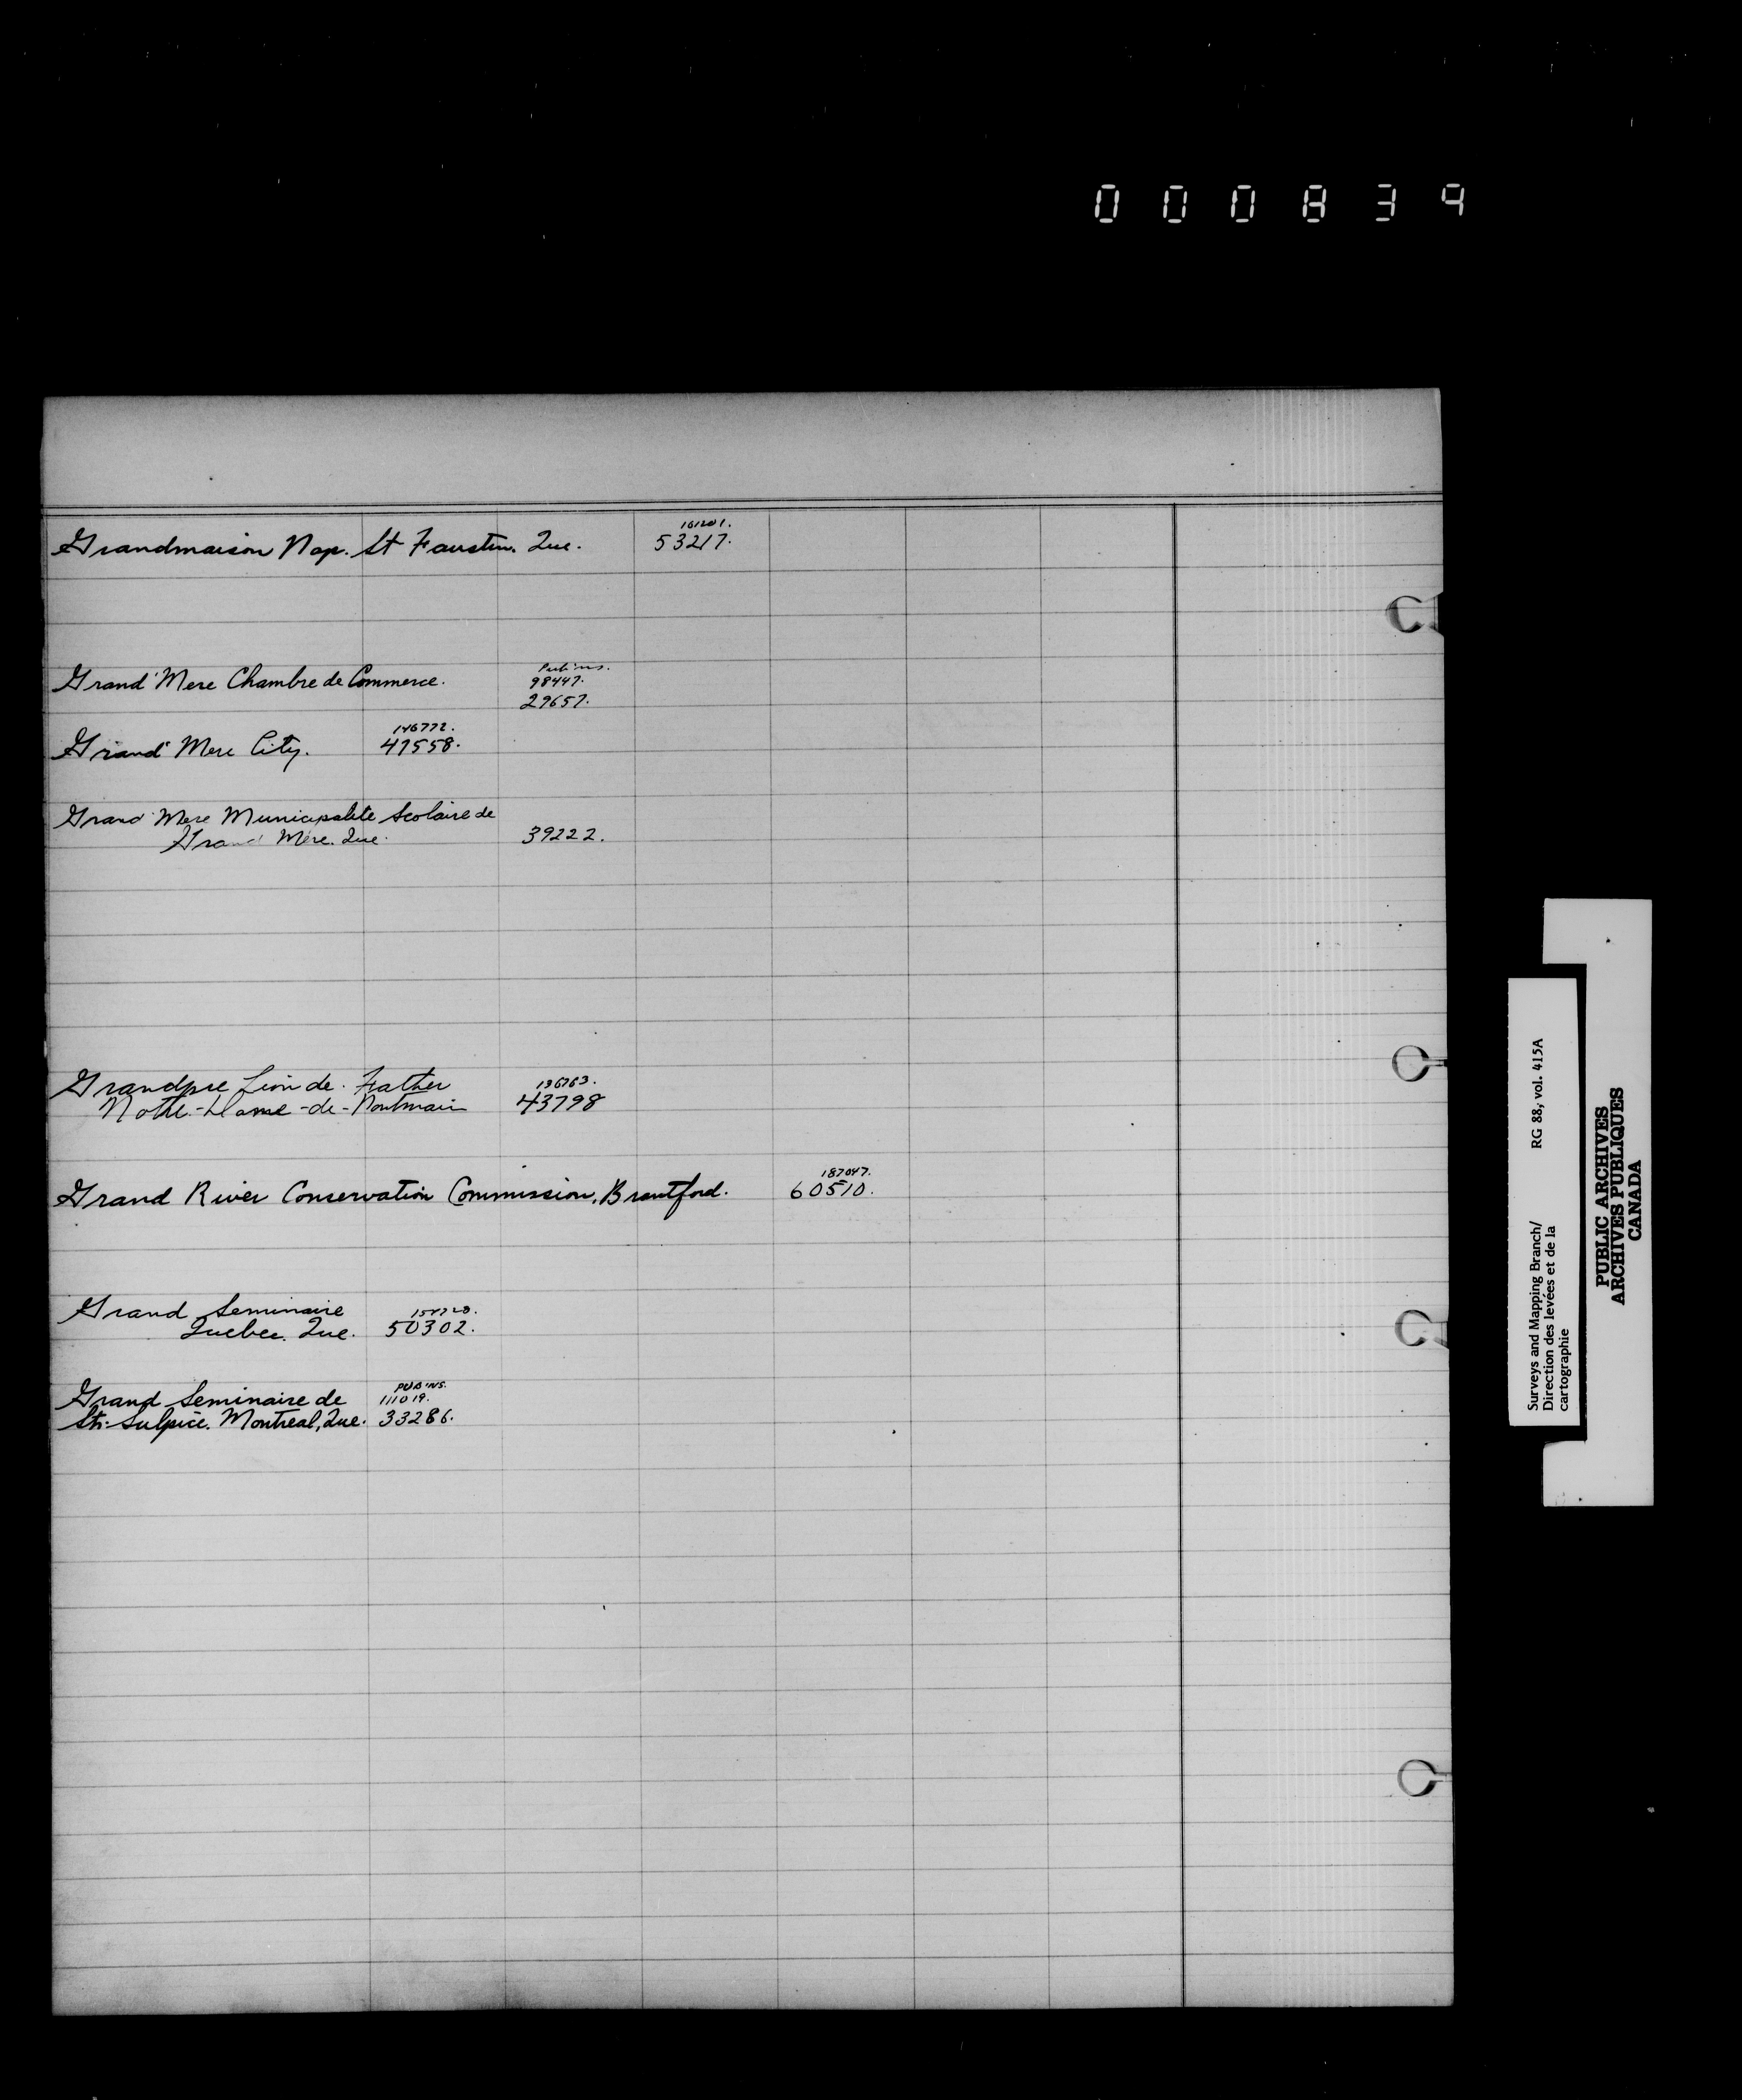 000839
161201.
Grandmaison Nap. St Faustin. Que. 53217.
Grand'Mere Chambre de Commerce.
98447.
29657.
146772.
Grand' Mere City. 47558.
Grand'Mere Municipalite Scolaire de
Grand Mere. Que. 39222.
Grandpre Leon de. Father 136763.
Notre-Dame-de-Pontmain 43798
187047.
Grand River Conservation Commission, Brantford. 60510.
Grand Seminaire
Quebec. Que. 50302.
PUB'NS.
Grand Seminaire de 111019.
St-Sulpice. Montreal, Que. 33286.
Surveys and Mapping Branch/ RG 88, vol. 415A
Direction des levées et de la
cartographie
PUBLIC ARCHIVES
ARCHIVES PUBLIQUES
CANADA